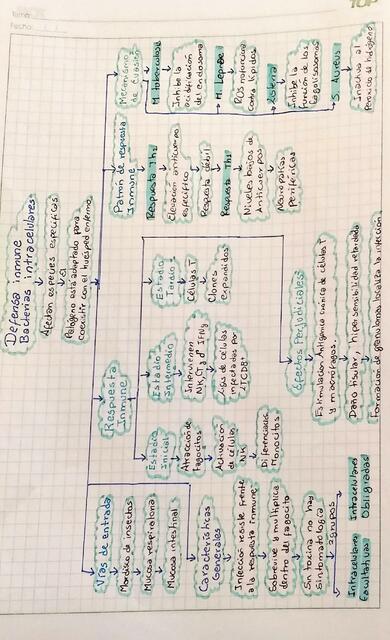 TOP
Tema:
Fecha:
Defensa inmune
Bacterias intracelulares
Afectan especies específicas
El
Patógeno está adaptado para
coexistir con el huesped enfermo
Vías de entrada
Mordisco de insectos
Mucosa respiratoria
Mucosa intestinal
Características
Generales
Infección resiste frente
a la respuesta inmune
Sobrevive y multiplica
dentro del fagocito
Sin toxina no hay
Sintomatología
2 grupos
Intracelulares
Facultativas
Intracelulares
Obligadas
Respuesta
Inmune
Estadio
Inicial
Atracción de
Fagocitos
Activación
de células
NK
Diferencias
Monocitos
Estadio
Intermedio
Intervienen
NK,
IFNγ
Lisis de células
infectadas por
TCD8+
Estadio
Tardío
Células T
Clones
expandidos
Efectos Perjudiciales
Estimulador Antigénico
células T
y macrófagos.
Daño tisular, hipersensibilidad retardada
Formación de granulomas localiza la infección
Patrón de respuesta
Inmune
Respuesta Th2
Elevación anticuerpo
específico
Respuesta débil
Respuesta Th1
Niveles bajos de
Anticuerpos
Neuropatías
Periféricas
Mecanismo
de Evasión
M. tuberculosis
Inhibe la
acidificación
del endosoma
M. Leprae
ROS
contra lípidos
Listeria
Inhibe la
función de los
fagolisosomas
S. Aureus
Inactiva al
peróxido de hidrógeno